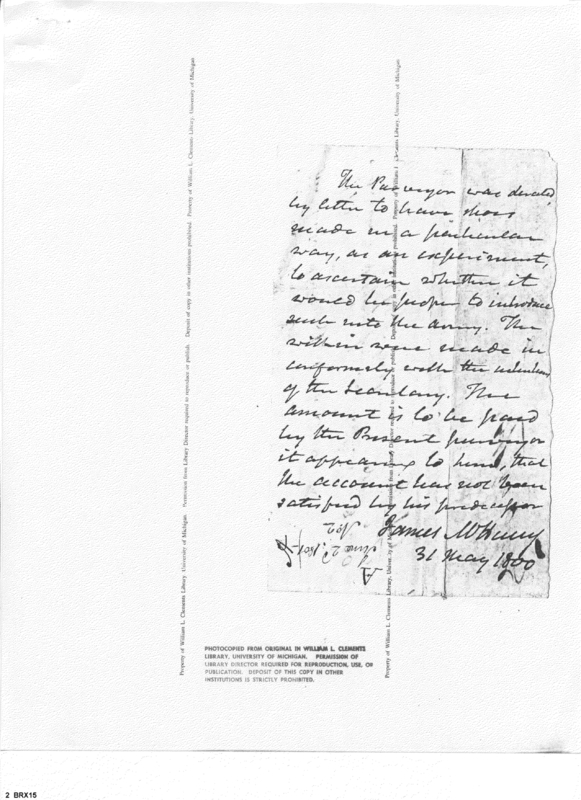 The Purveyor was directed
by letter to have shoes
made in a particular
way, as an experiment,
to ascertain whether it
would be proper to introduce
such into the army. The
within were made in
conformity with the intentions
of the Secretary. The
amount is to be paid
by the Present purveyor
it appearing to him, that
the account has not been
satisfied by his predecessor
James McHenry
31 May 1800
A
No 2
Property of William L. Clements Library, University of Michigan
Permission from Library Director required to reproduce or publish.
Deposit of copy in other institutions prohibited.
Property of William L. Clements Library, University of Michigan
Property of William L. Clements Library, University of Michigan
Permission from Library Director required to reproduce or publish.
Deposit of copy in other institutions prohibited.
Property of William L. Clements Library, University of Michigan
PHOTOCOPIED FROM ORIGINAL IN WILLIAM L. CLEMENTS
LIBRARY, UNIVERSITY OF MICHIGAN. PERMISSION OF
LIBRARY DIRECTOR REQUIRED FOR REPRODUCTION, USE, OR
PUBLICATION. DEPOSIT OF THIS COPY IN OTHER
INSTITUTIONS IS STRICTLY PROHIBITED.
2 BRX15